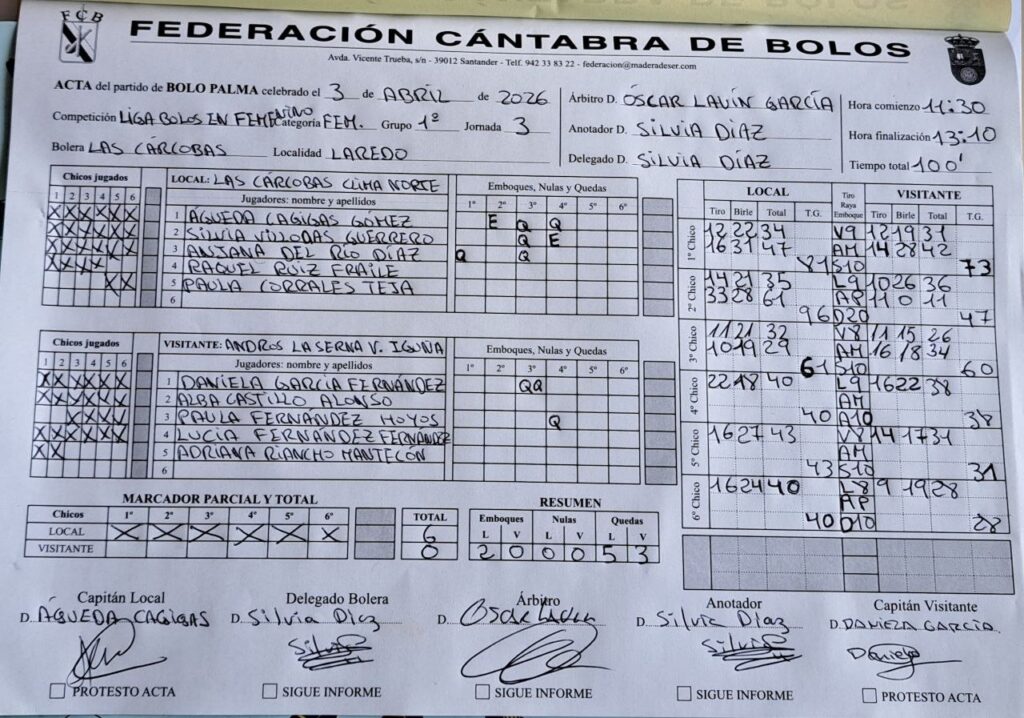 FCB
FEDERACIÓN CÁNTABRA DE BOLOS
Avda. Vicente Trueba, s/n - 39012 Santander - Telf. 942 33 83 22 - federacion@maderadeser.com
ACTA del partido de BOLO PALMA celebrado el 3 de ABRIL de 2026
Competición LIGA BOLOS EN FEMENINO Categoría FEM. Grupo 1º Jornada 3
Bolera LAS CÁRCOBAS Localidad LAREDO
Árbitro D. ÓSCAR LAVÍN GARCÍA
Anotador D. SILVIA DÍAZ
Delegado D. SILVIA DÍAZ
Hora comienzo 11:30
Hora finalización 13:10
Tiempo total 100'
Chicos jugados
1 2 3 4 5 6
LOCAL: LAS CÁRCOBAS CLIMA NORTE
Jugadores: nombre y apellidos
Emboques, Nulas y Quedas
1º 2º 3º 4º 5º 6º
X X X X X X 1 ÁGUEDA CAGIGAS GÓMEZ E Q Q
X X X X X X 2 SILVIA VILLODAS GUERRERO Q E
X X X X X X 3 ANJANA DEL RÍO DÍAZ Q Q
X X X X 4 RAQUEL RUIZ FRAILE
X X 5 PAULA CORRALES TEJA
6
Chicos jugados
1 2 3 4 5 6
VISITANTE: ANDROS LA SERNA V. IGUÑA
Jugadores: nombre y apellidos
Emboques, Nulas y Quedas
1º 2º 3º 4º 5º 6º
X X X X X X 1 DANIELA GARCÍA FERNÁNDEZ QQ
X X X X X X 2 ALBA CASTILLO ALONSO
X X X X 3 PAULA FERNÁNDEZ HOYOS Q
X X X X X X 4 LUCÍA FERNÁNDEZ FERNÁNDEZ
X X 5 ADRIANA RIANCHO MANTECÓN
6
LOCAL Tiro Raya Emboque VISITANTE
Tiro Birle Total T.G. Tiro Birle Total T.G.
1º Chico
12 22 34 V9 12 19 31
16 31 47 AM 14 28 42
81 S10 73
2º Chico
14 21 35 L9 10 26 36
33 28 61 AP 11 0 11
96 D20 47
3º Chico
11 21 32 V8 11 15 26
10 19 29 AM 16 18 34
61 S10 60
4º Chico
22 18 40 L9 16 22 38
AM
40 A10 38
5º Chico
16 27 43 V8 14 17 31
AM
43 S10 31
6º Chico
16 24 40 L8 9 19 28
AP
40 D10 28
MARCADOR PARCIAL Y TOTAL
Chicos 1º 2º 3º 4º 5º 6º TOTAL
LOCAL X X X X X X 6
VISITANTE 0
RESUMEN
Emboques Nulas Quedas
L V L V L V
2 0 0 0 5 3
Capitán Local
D. ÁGUEDA CAGIGAS
PROTESTO ACTA
Delegado Bolera
D. Silvia Díaz
Silvia
SIGUE INFORME
Árbitro
D. Oscar Lavín
SIGUE INFORME
Anotador
D. Silvia Díaz
Silvia
SIGUE INFORME
Capitán Visitante
D. DANIELA GARCÍA
Daniela
PROTESTO ACTA